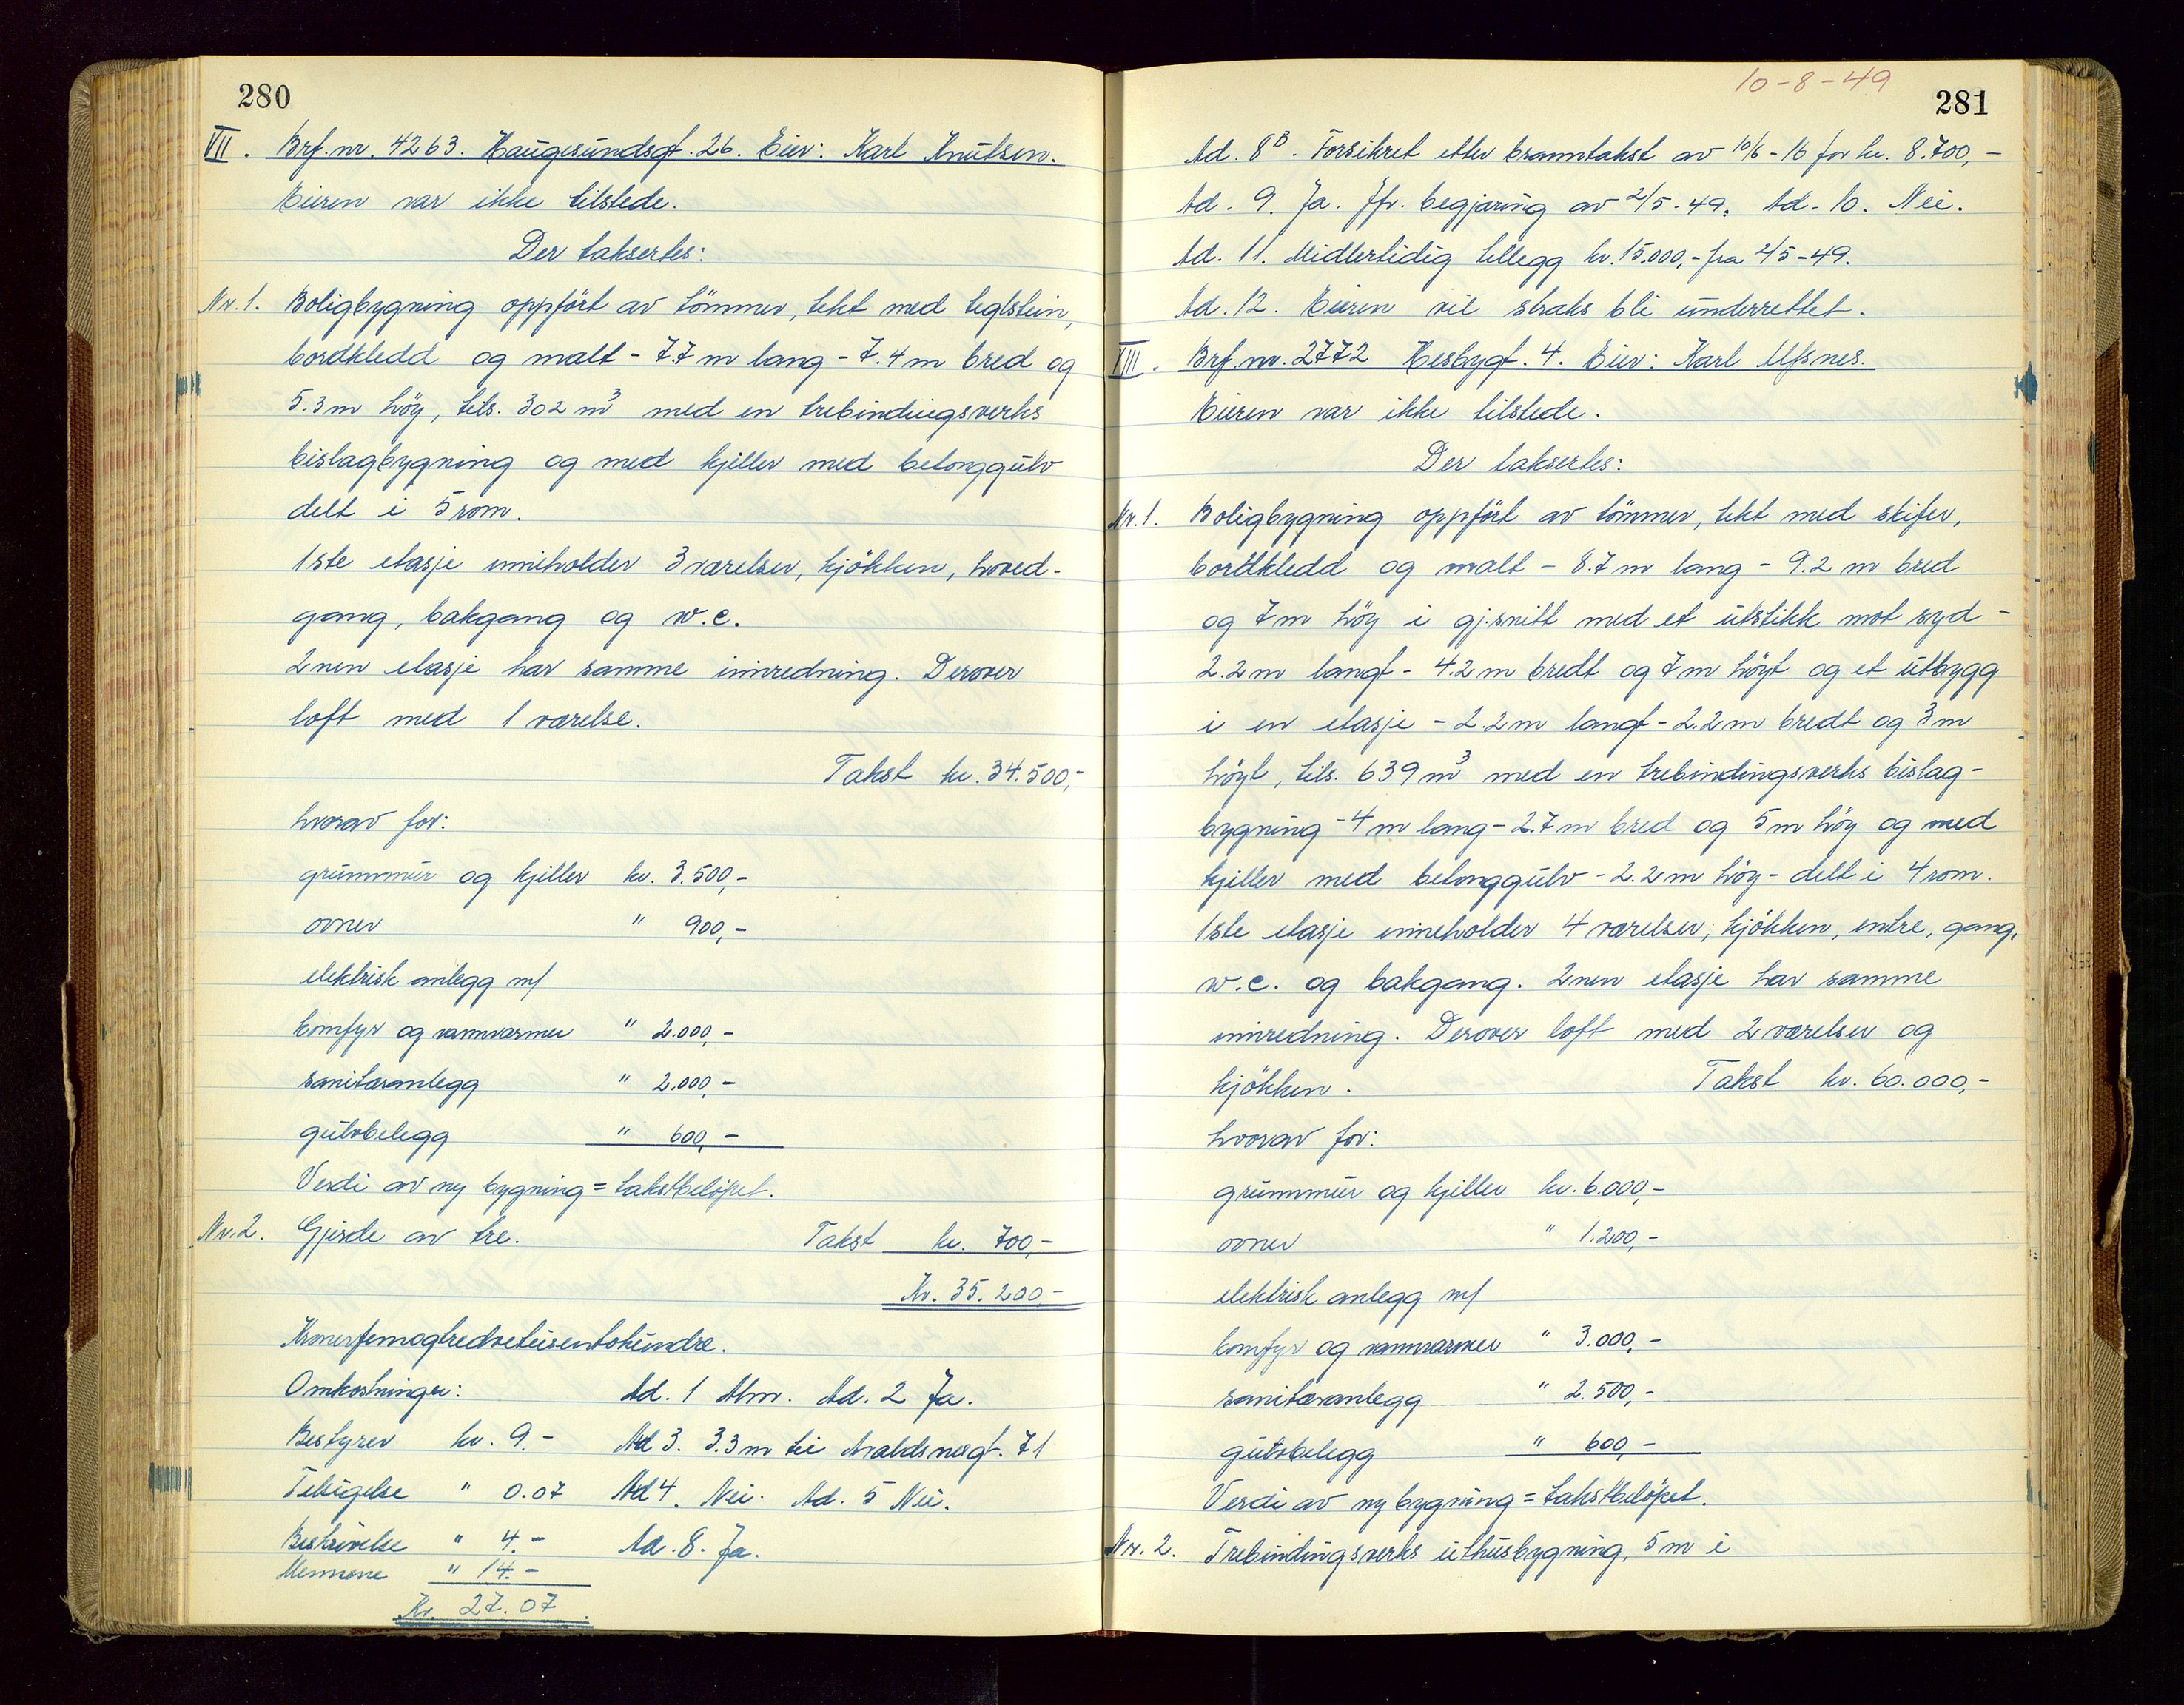 280
VII. Brf. nr. 4263. Haugesundsgt. 26. Eier: Karl Knutsen.
Eieren var ikke tilstede.
Der taksertes:
Nr. 1. Boligbygning oppfört av tömmer, tekt med teglstein,
bordkledd og malt - 7.7 m lang - 7.4 m bred og
5.3 m höy, tils. 302 m³ med en trebindingsverks
bislagbygning og med kjeller med betonggulv
delt i 5 rom.
1ste etasje inneholder 3 værelser, kjökken, hoved-
gang, bakgang og w.c.
2nen etasje har samme innredning. Derover
loft med 1 værelse.
Takst kr. 34.500,-
hvorav for:
grunnmur og kjeller kr. 3.500,-
ovner " 900,-
elektrisk anlegg m/
komfyr og vannvarmer " 2.000,-
sanitæranlegg " 2.000,-
gulvbelegg " 600,-
Verdi av ny bygning = takstbelöpet.
Nr. 2. Gjerde av tre. Takst kr. 700,-
Kr. 35.200,-
Kronerfemogtredvetusentohundre.
Omkostninger: Ad. 1 Alm. Ad. 2 Ja.
Bestyrer kr. 9.- Ad 3. 3.3 m til Avaldsnesgt. 71
Tilsigelse " 0.07 Ad 4. Nei. Ad. 5 Nei.
Beskrivelse " 4.- Ad. 8. Ja.
Mennene " 14.-
Kr. 27.07
10-8-49
281
Ad. 8ᴮ. Forsikret etter branntakst av 10/6-16 for kr. 8.700,-
Ad. 9. Ja. Jfr. begjæring av 2/5-49. Ad. 10. Nei.
Ad. 11. Midlertidig tillegg kr. 15.000,- fra 2/5-49.
Ad. 12. Eieren vil straks bli underrettet.
VIII. Brf. nr. 2772 Hesbygt. 4. Eier: Karl Ulfsnes.
Eieren var ikke tilstede.
Der taksertes:
Nr. 1. Boligbygning oppfört av tömmer, tekt med skifer,
bordkledd og malt - 8.7 m lang - 9.2 m bred
og 7 m höy i gj.snitt med et utstikk mot syd -
2.2 m langt - 4.2 m bredt og 7 m höyt og et utbygg
i en etasje - 2.2 m langt - 2.2 m bredt og 3 m
höyt, tils. 639 m³ med en trebindingsverks bislag-
bygning - 4 m lang - 2.7 m bred og 5 m höy og med
kjeller med betonggulv - 2.2 m höy - delt i 4 rom.
1ste etasje inneholder 4 værelser, kjökken, entre, gang,
w.c. og bakgang. 2nen etasje har samme
innredning. Derover loft med 2 værelser og
kjökken. Takst kr. 60.000,-
hvorav for:
grunnmur og kjeller kr. 6.000,-
ovner " 1.200,-
elektrisk anlegg m/
komfyr og vannvarmer " 3.000,-
sanitæranlegg " 2.500,-
gulvbelegg " 600,-
Verdi av ny bygning = takstbelöpet.
Nr. 2. Trebindingsverks uthusbygning, 5 m i